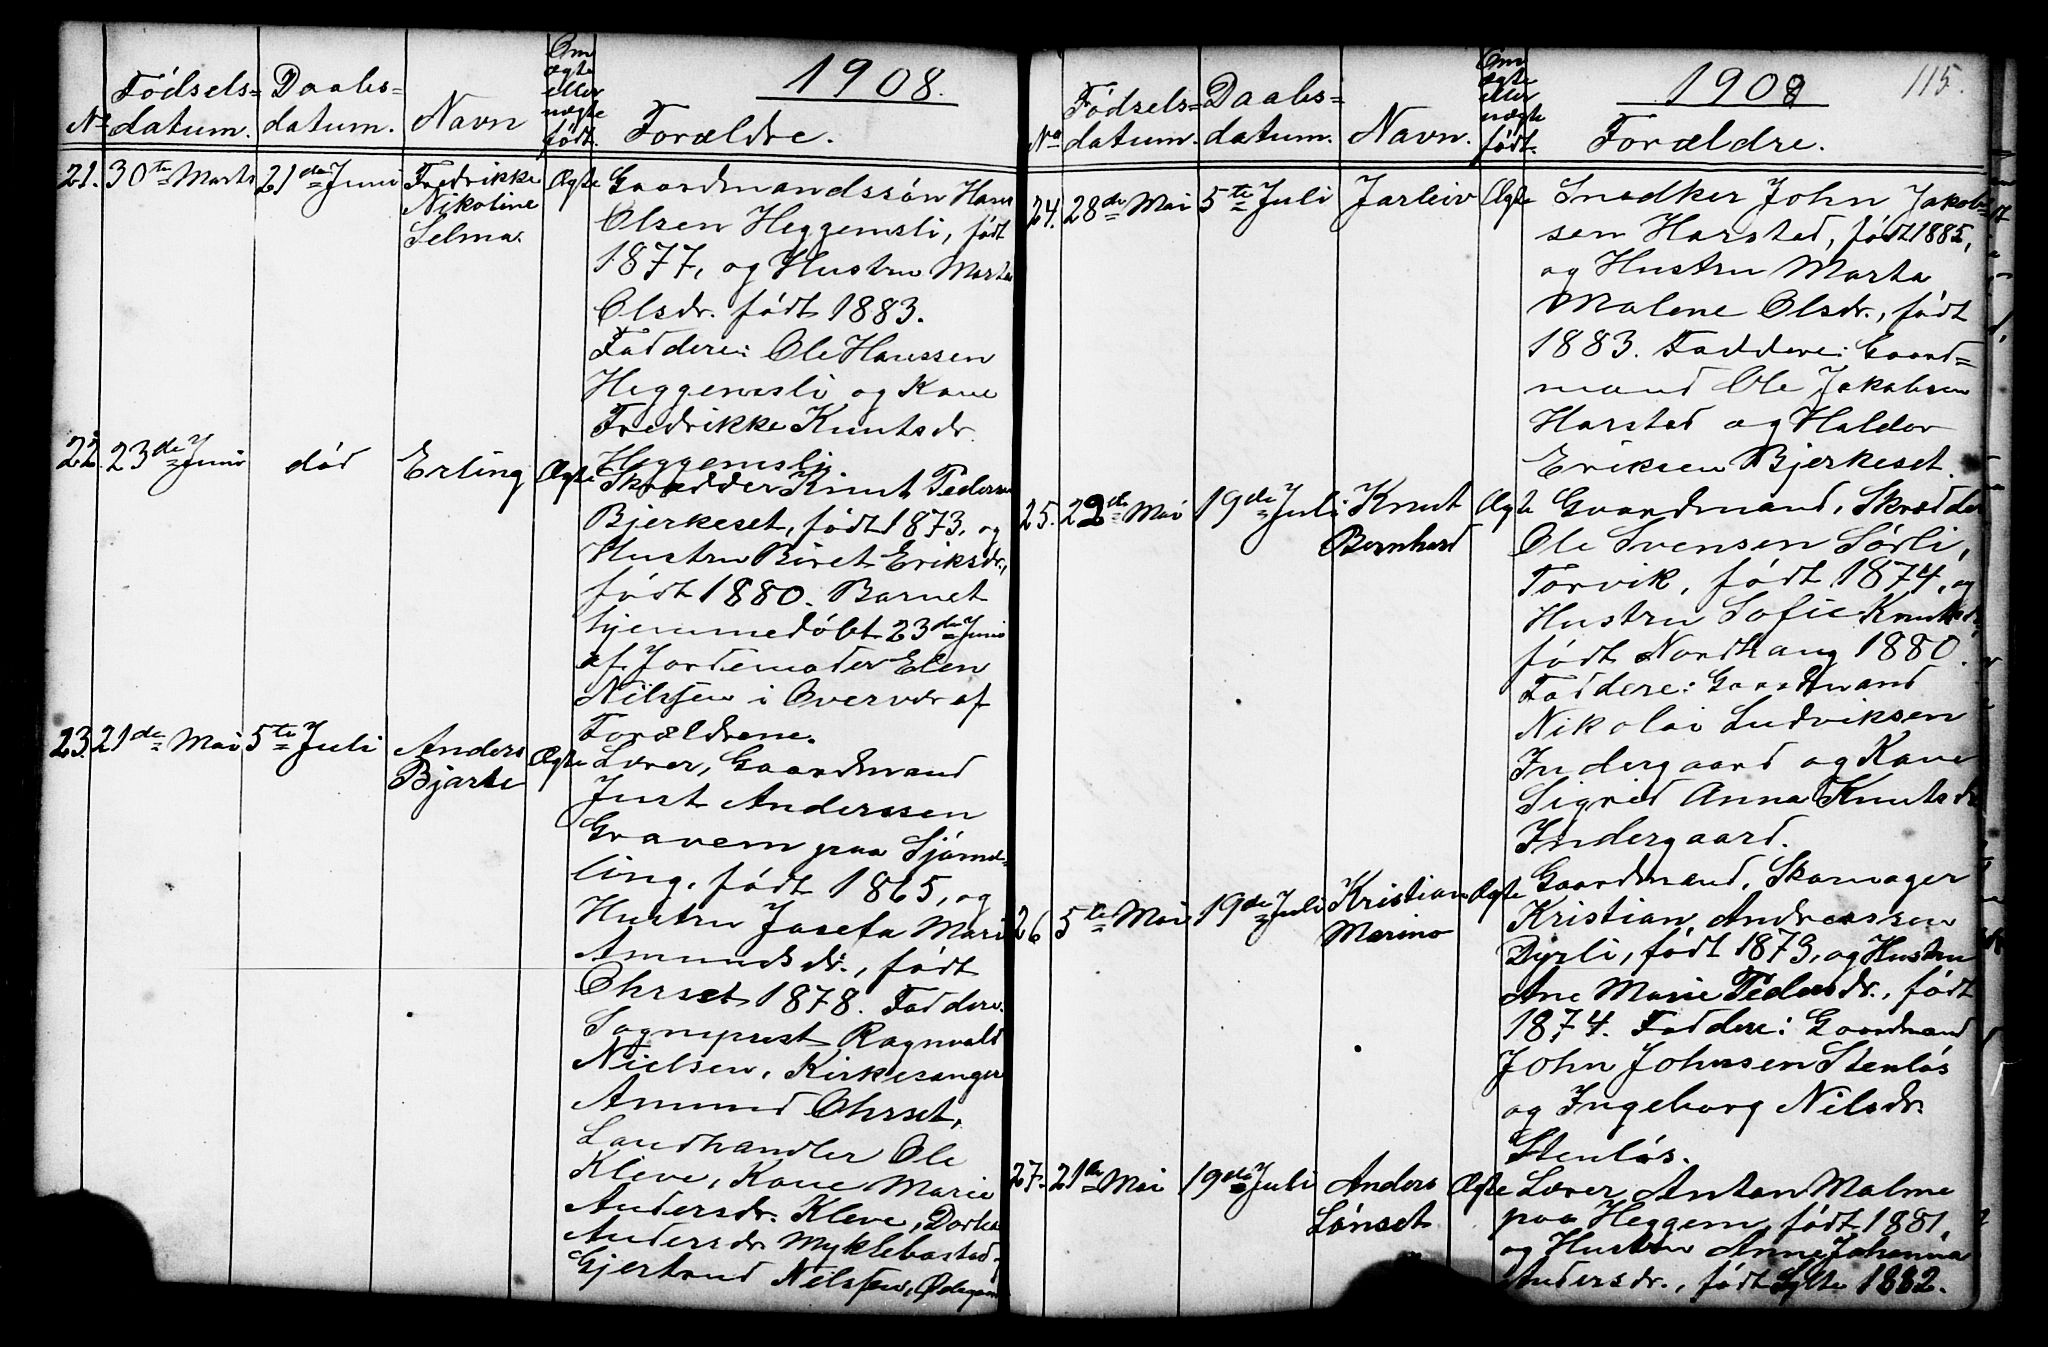 1908.
Nº
Födsels=
datum.
Daabs=
datum.
Navn
Om
ægte
eller
uægte
födt.
Forældre.
21.
30te Marts
21de Juni
Fredrikke
Nikoline
Selma.
Ægte
Gaardmandssön Hans
Olsen Heggemsli, födt
1877, og Hustru Marta
Olsdr. födt 1883.
Faddere: Ole Hanssen
Heggemsli og Kone
Fredrikke Knutsdr.
Heggemsli.
22.
23de Juni
död
Erling
Ægte
Skrædder Knut Pedersen
Bjerkeset, födt 1873, og
Hustru Beret Eriksdr.,
födt 1880. Barnet
hjemmedöbt 23de Juni
af Jordemoder Elen
Nilssen i Overvær af
Forældrene.
23.
21de Mai
5te Juli
Anders
Bjarte
Ægte
Lærer, Gaardmand
Just Anderssen
Gravem paa Sjömæ-
ling, födt 1865, og
Hustru Josefa Marie
Amundsdr., födt
Ohrset 1878. Faddere:
Sogneprest Ragnvald
Nielsen, Kirkesanger
Amund Ohrset,
Landhandler Ole
Kleve, Kone Marie
Andersdr. Kleve, Dorka
Andersdr. Myklebostad,
Gjertrud Nilssen,
1908
115.
Nº
Födsels=
datum.
Daabs=
datum.
Navn.
Om
ægte
eller
uægte
födt.
Forældre.
24.
28de Mai
5te Juli
Jarleiv
Ægte
Snedker John Jakob-
sen Harstad, födt 1885,
og Hustru Marta
Malene Olsdr., födt
1883. Faddere: Gaard=
mand Ole Jakobsen
Harstad og Haldor
Eriksen Bjerkeset.
25.
22de Mai
19de Juli
Knut
Bernhard
Ægte
Gaardmand, Skrædder
Ole Svensen Sörli,
Torvik, födt 1874, og
Hustru Sofie Knutsdr.,
födt Nordhaug 1880.
Faddere: Gaardmand
Nikolai Ludviksen
Indergaard og Kone
Sigrid Anna Knutsdr.
Indergaard.
26
5te Mai
19de Juli
Kristian
Marino
Ægte
Gaardmand, Skomager
Kristian Andreassen
Dyrli, födt 1873, og Hustru
Ane Marie Pedersdr., födt
1874. Faddere: Gaardmand
John Johnsen Stenlös
og Ingeborg Nilsdr.
Stenlös.
27.
21de Mai
19de Juli
Anders
Lönset
Ægte
Lærer Anton Malme
paa Heggem, födt 1881,
og Hustru Anne Johanna
Andersdr., födt Sylte 1882.